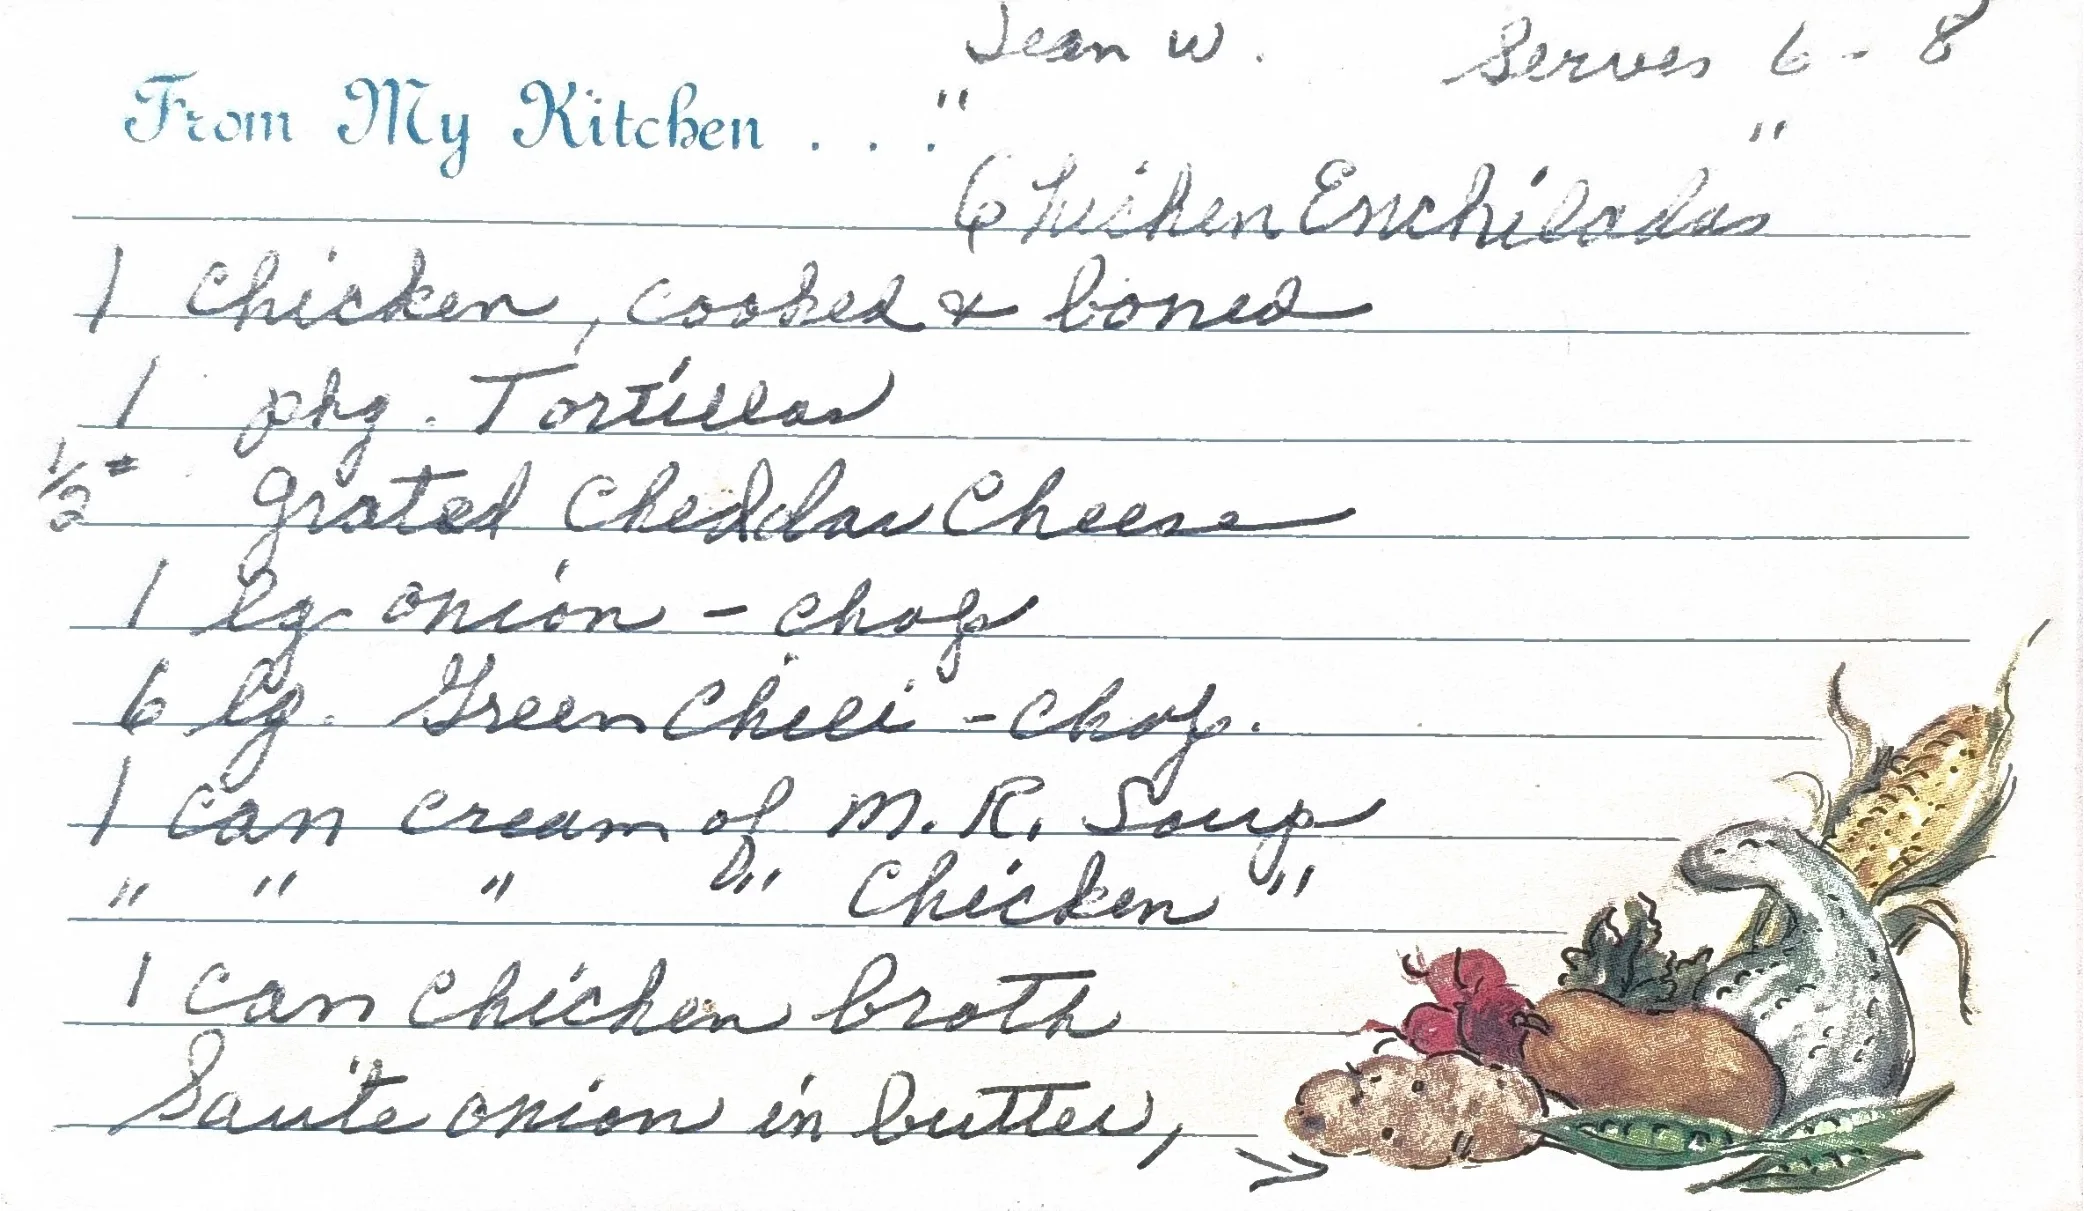 Jean W. Serves 6-8
From My Kitchen . . .
"Chicken Enchiladas"
1 Chicken, cooked & boned
1 pkg. Tortillas
1/2 # grated Cheddar Cheese
1 lg onion - chop
6 lg. Green Chili - chop.
1 can cream of M.R. Soup
" " " " Chicken "
1 can chicken broth
Sauté onion in butter,